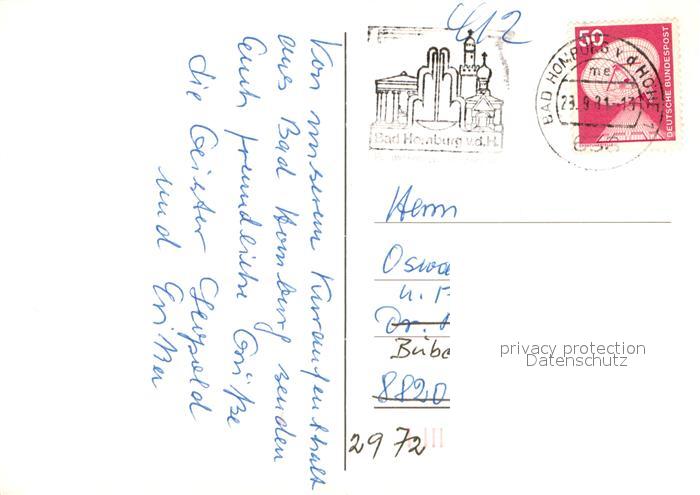 Von unserem Kuraufenthalt
aus Bad Homburg senden
Euch freundliche Grüße
die Geister Leopold
und
412
Bad Homburg v.d.H.
BAD HOMBURG v.d.HÖHE 1
me
23.9.81-13
50
DEUTSCHE BUNDESPOST
Herrn
8820
2972
privacy protection
Datenschutz